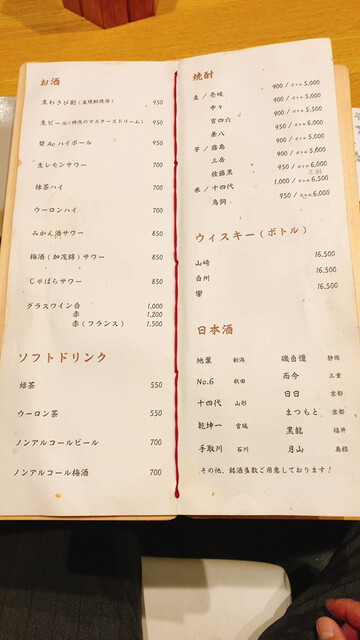 お酒
生わさび割(麦焼酎使用) 950
生ビール(神泡のマスターズドリーム) 950
碧Aoハイボール 950
生レモンサワー 700
抹茶ハイ 700
ウーロンハイ 700
みかん酒サワー 850
梅酒(加茂錦)サワー 850
すばらサワー 850
グラスワイン白 1,000
赤 1,200
赤(フランス) 1,500
ソフトドリンク
緑茶 550
ウーロン茶 550
ノンアルコールビール 700
ノンアルコール梅酒 700
焼酎
麦/壱岐 900/ボトル5,000
中々 900/ボトル5,500
吉四六 950/ボトル6,000
兼八
芋/霧島 900/ボトル5,000
三岳 900/ボトル5,800
佐藤黒 950/ボトル6,000
米/十四代 1,000/ボトル6,500
鳥飼 950/ボトル6,000
ウィスキー(ボトル)
山崎 16,500
白州 16,500
響 16,500
日本酒
地葉 新潟
No.6 秋田
十四代 山形
乾坤一 宮城
手取川 石川
磯自慢 静岡
而今 三重
日日 京都
まつもと 京都
黒龍 福井
月山 島根
その他、銘酒多数ご用意しております!